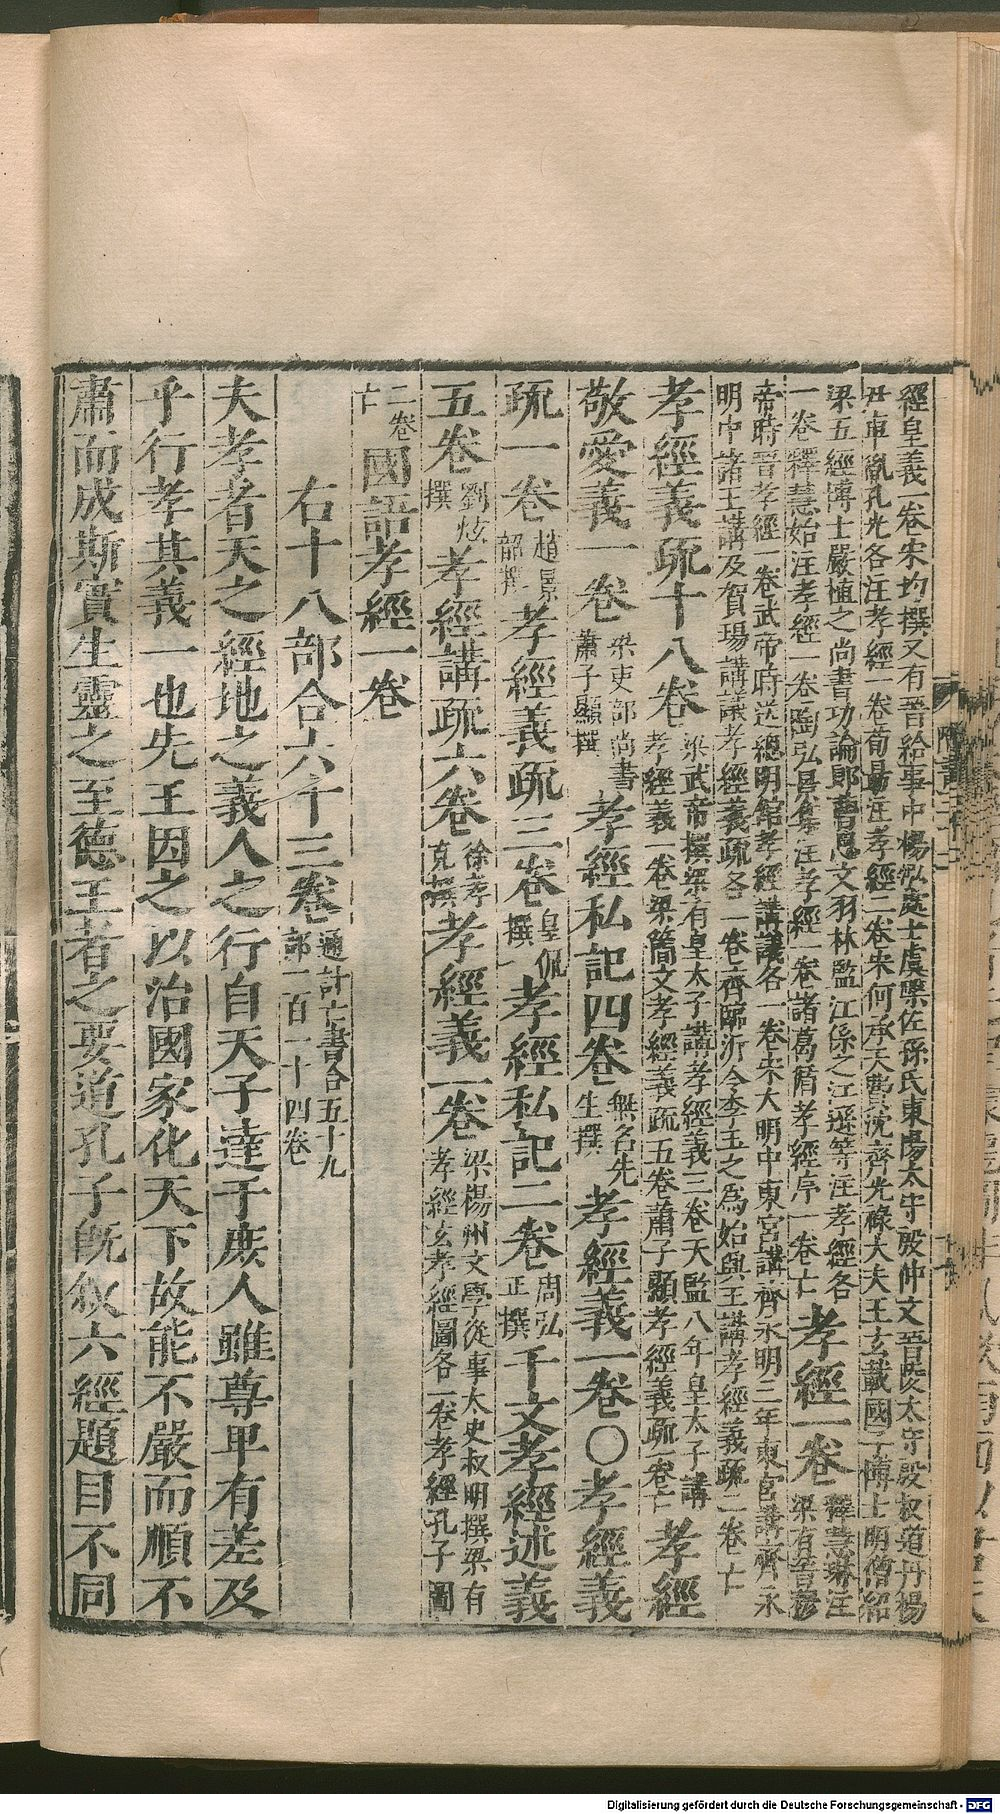 經皇義一卷宋均撰又有晉給事中楊泓處士虞槃佐孫氏東陽太守殷仲文晉陵太守殷叔道丹楊
尹車胤孔光各注孝經一卷荀昺注孝經二卷宋何承天費沈齊光祿大夫王玄載國子博士明僧紹
梁五經博士嚴植之尚書功論郎曹思文羽林監江係之江遜等注孝經各
一卷釋慧始注孝經一卷陶弘景集注孝經一卷諸葛循孝經序一卷亡
孝經一卷
釋慧琳注
梁有晉穆
帝時晉孝經一卷武帝時送總明館孝經講議各一卷宋大明中東宮講齊永明三年東宮講齊永
明中諸王講及賀瑒講議孝經義疏各一卷齊臨沂令李玉之爲始興王講孝經義疏二卷亡
孝經義疏十八卷
梁武帝撰梁有皇太子講孝經義三卷天監八年皇太子講
孝經義一卷梁簡文孝經義疏五卷蕭子顯孝經義疏一卷亡
孝經
敬愛義一卷
梁吏部尚書
蕭子顯撰
孝經私記四卷
無名先
生撰
孝經義一卷〇孝經義
疏一卷
趙景
韶撰
孝經義疏三卷
皇侃
撰
孝經私記二卷
周弘
正撰
千文孝經述義
五卷
劉炫
撰
孝經講疏六卷
徐孝
克撰
孝經義一卷
梁楊州文學從事太史叔明撰梁有
孝經玄孝經圖各一卷孝經孔子圖
二卷
亡
國語孝經一卷
右十八部合六十三卷
通計亡書合五十九
部一百一十四卷
夫孝者天之經地之義人之行自天子達于庶人雖尊卑有差及
乎行孝其義一也先王因之以治國家化天下故能不嚴而順不
肅而成斯實生靈之至德王者之要道孔子既敘六經題目不同
Digitalisierung gefördert durch die Deutsche Forschungsgemeinschaft - DFG